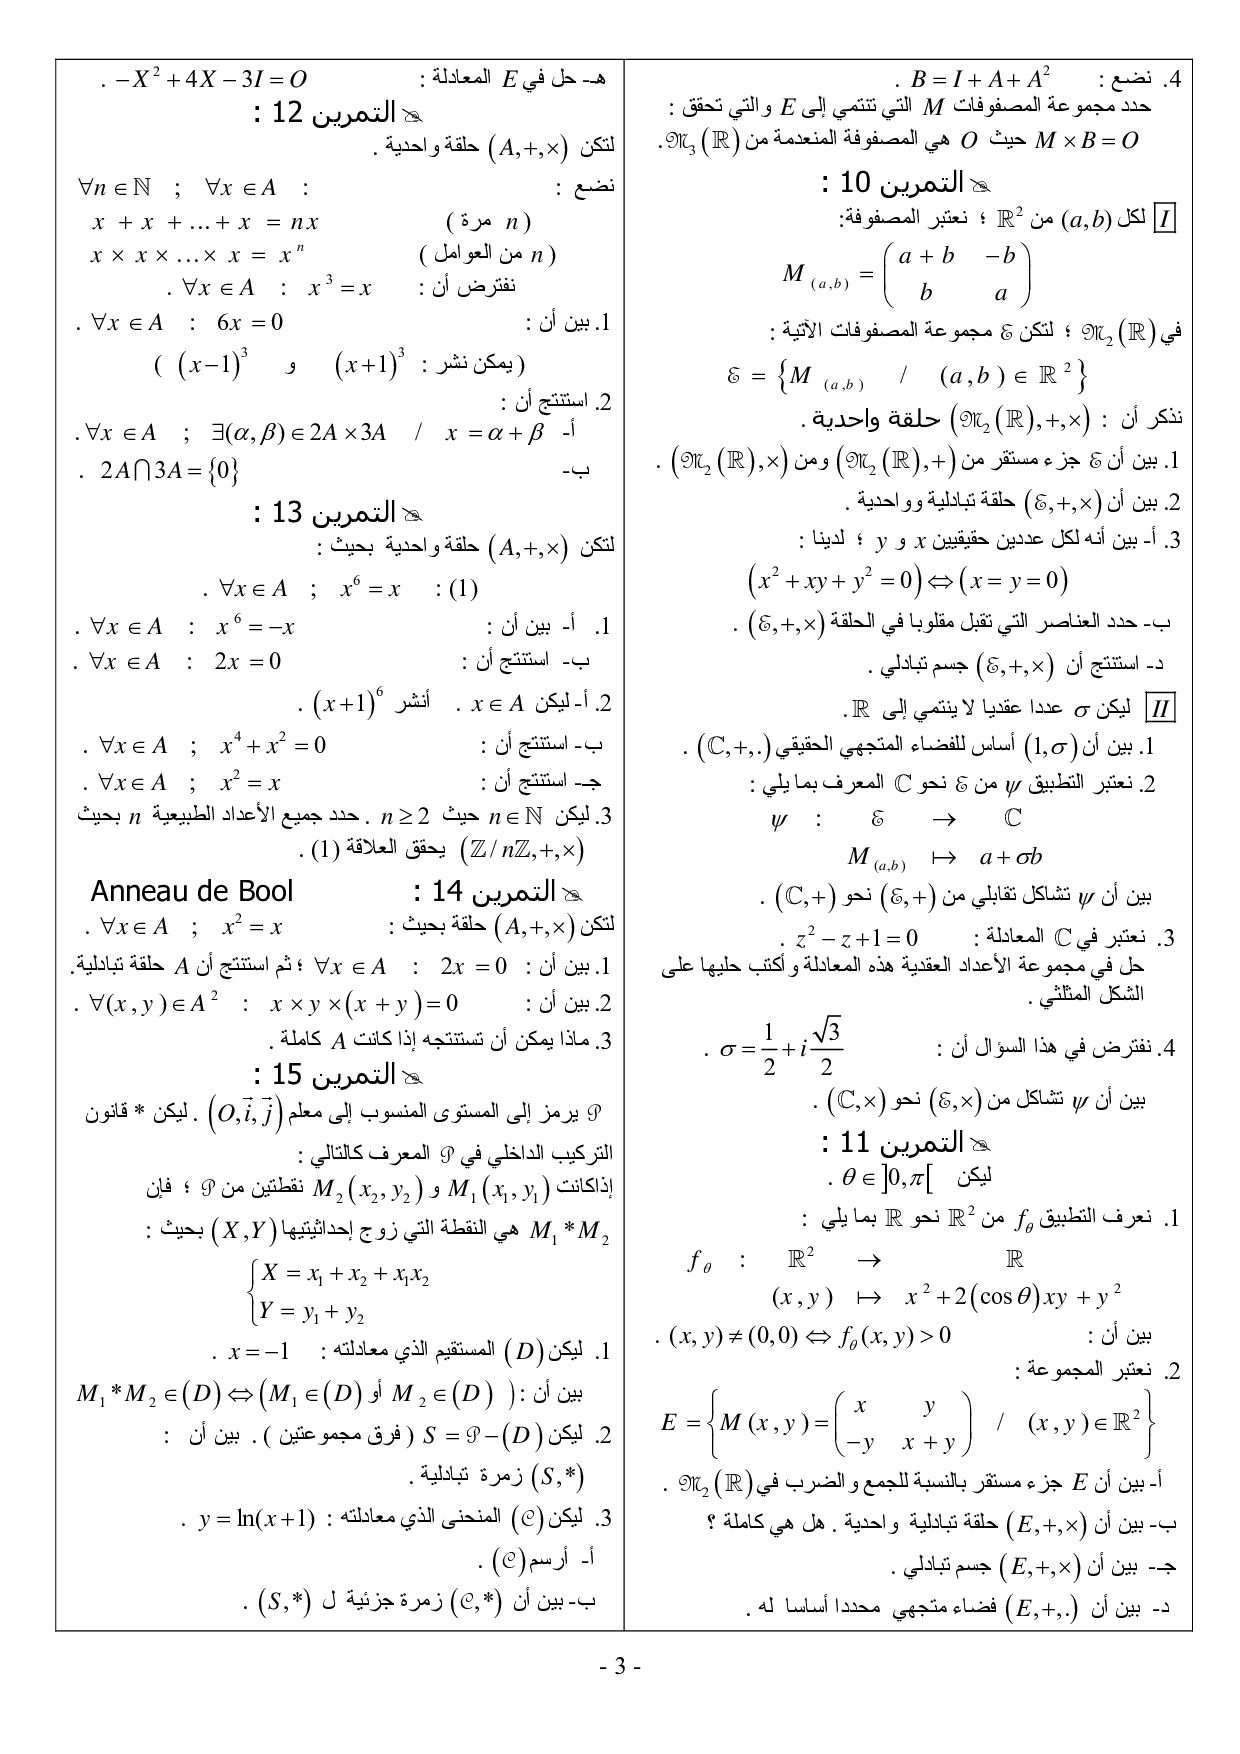 4. نضع : B = I + A + A² .
حدد مجموعة المصفوفات M التي تنتمي إلى E والتي تحقق :
M × B = O حيث O هي المصفوفة المنعدمة من 𝔐₃(ℝ).
✎التمرين 10 :
I لكل (a,b) من ℝ² ؛ نعتبر المصفوفة:
M₍ₐ,b₎ = ( a + b   −b
b   a )
في 𝔐₂(ℝ) ؛ لتكن ℰ مجموعة المصفوفات الآتية :
ℰ = { M (a,b) / (a,b) ∈ ℝ² }
نذكر أن : (𝔐₂(ℝ),+,×) حلقة واحدية .
1. بين أن ℰ جزء مستقر من (𝔐₂(ℝ),+) ومن (𝔐₂(ℝ),×) .
2. بين أن (ℰ,+,×) حلقة تبادلية وواحدية .
3. أ- بين أنه لكل عددين حقيقيين x و y ؛ لدينا :
(x² + xy + y² = 0) ⇔ (x = y = 0)
ب- حدد العناصر التي تقبل مقلوبا في الحلقة (ℰ,+,×) .
د- استنتج أن (ℰ,+,×) جسم تبادلي .
II ليكن σ عددا عقديا لا ينتمي إلى ℝ .
1. بين أن (1,σ) أساس للفضاء المتجهي الحقيقي (ℂ,+,.) .
2. نعتبر التطبيق ψ من ℰ نحو ℂ المعرف بما يلي :
ψ : ℰ → ℂ
M (a,b) ↦ a + σb
بين أن ψ تشاكل تقابلي من (ℰ,+) نحو (ℂ,+) .
3. نعتبر في ℂ المعادلة : z² − z + 1 = 0 .
حل في مجموعة الأعداد العقدية هذه المعادلة وأكتب حليها على
الشكل المثلثي .
4. نفترض في هذا السؤال أن : σ = 1/2 + i √3/2 .
بين أن ψ تشاكل من (ℰ,×) نحو (ℂ,×) .
✎التمرين 11 :
ليكن θ ∈ ]0,π[ .
1. نعرف التطبيق f_θ من ℝ² نحو ℝ بما يلي :
f_θ : ℝ² → ℝ
(x,y) ↦ x² + 2(cos θ)xy + y²
بين أن : (x,y) ≠ (0,0) ⇔ f_θ(x,y) > 0 .
2. نعتبر المجموعة :
E = { M(x,y) = ( x   y
−y   x + y ) / (x,y) ∈ ℝ² }
أ- بين أن E جزء مستقر بالنسبة للجمع والضرب في 𝔐₂(ℝ) .
ب- بين أن (E,+,×) حلقة تبادلية واحدية . هل هي كاملة ؟
جـ- بين أن (E,+,×) جسم تبادلي .
د- بين أن (E,+,.) فضاء متجهي محددا أساسا له .
هـ- حل في E المعادلة : −X² + 4X − 3I = O .
✎التمرين 12 :
لتكن (A,+,×) حلقة واحدية .
نضع : ∀n ∈ ℕ ; ∀x ∈ A :
x + x + ... + x = nx ( n مرة )
x × x × ... × x = xⁿ ( n من العوامل )
نفترض أن : ∀x ∈ A : x³ = x .
1. بين أن : ∀x ∈ A : 6x = 0 .
( يمكن نشر : (x+1)³ و (x−1)³ )
2. استنتج أن :
أ- ∀x ∈ A ; ∃(α,β) ∈ 2A × 3A / x = α + β .
ب- 2A ⋂ 3A = {0} .
✎التمرين 13 :
لتكن (A,+,×) حلقة واحدية بحيث :
(1) : ∀x ∈ A ; x⁶ = x .
1. أ- بين أن : ∀x ∈ A : x⁶ = −x .
ب- استنتج أن : ∀x ∈ A : 2x = 0 .
2. أ- ليكن x ∈ A . أنشر (x+1)⁶ .
ب- استنتج أن : ∀x ∈ A ; x⁴ + x² = 0 .
جـ- استنتج أن : ∀x ∈ A ; x² = x .
3. ليكن n ∈ ℕ حيث n ≥ 2 . حدد جميع الأعداد الطبيعية n بحيث
(ℤ/nℤ,+,×) يحقق العلاقة (1) .
✎التمرين 14 : Anneau de Bool
لتكن (A,+,×) حلقة بحيث : ∀x ∈ A ; x² = x .
1. بين أن : ∀x ∈ A : 2x = 0 ؛ ثم استنتج أن A حلقة تبادلية.
2. بين أن : ∀(x,y) ∈ A² : x × y × (x + y) = 0 .
3. ماذا يمكن أن تستنتجه إذا كانت A كاملة .
✎التمرين 15 :
𝒫 يرمز إلى المستوى المنسوب إلى معلم (O,i⃗,j⃗) . ليكن * قانون
التركيب الداخلي في 𝒫 المعرف كالتالي :
إذاكانت M₁(x₁,y₁) و M₂(x₂,y₂) نقطتين من 𝒫 ؛ فإن
M₁ * M₂ هي النقطة التي زوج إحداثيتيها (X,Y) بحيث :
{ X = x₁ + x₂ + x₁x₂
Y = y₁ + y₂
1. ليكن (D) المستقيم الذي معادلته : x = −1 .
بين أن : M₁ * M₂ ∈ (D) ⇔ (M₁ ∈ (D) أو M₂ ∈ (D) )
2. ليكن S = 𝒫 − (D) ( فرق مجموعتين ) . بين أن :
(S,*) زمرة تبادلية .
3. ليكن (𝒞) المنحنى الذي معادلته : y = ln(x+1) .
أ- أرسم (𝒞) .
ب- بين أن (𝒞,*) زمرة جزئية ل (S,*) .
- 3 -